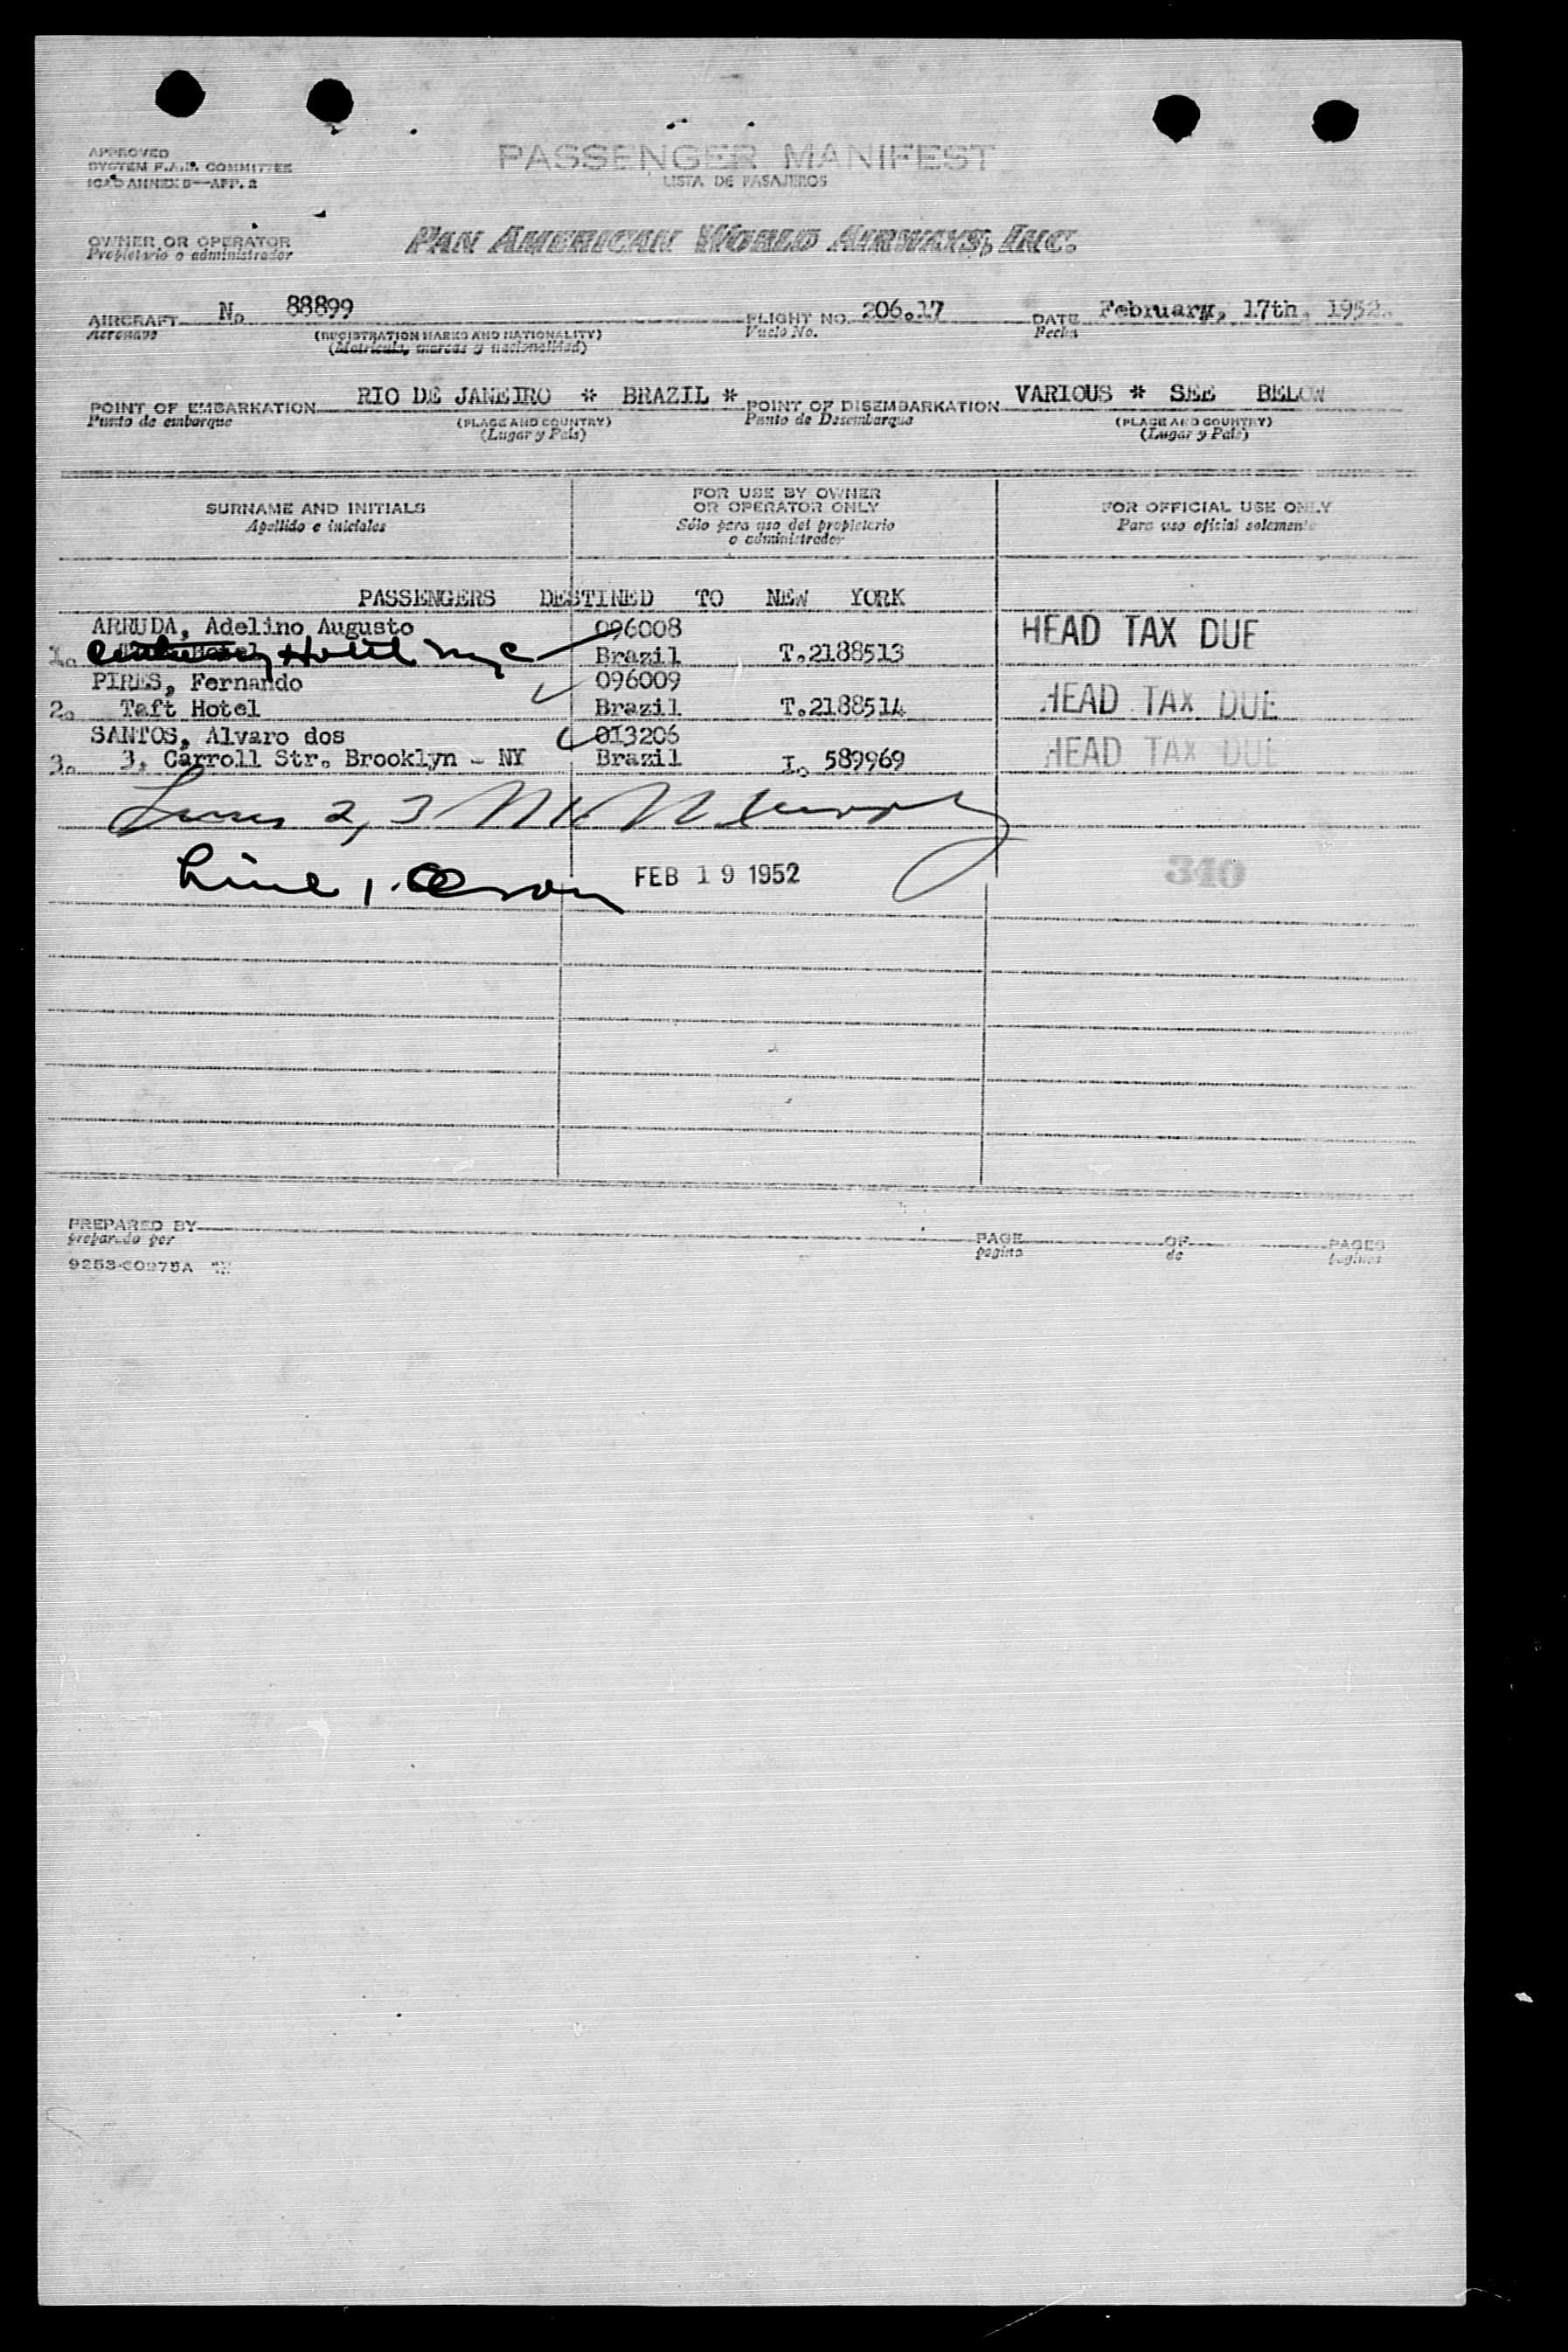 APPROVED
SYSTEM F.A.L. COMMITTEE
ICAO ANNEX 9—APP. 2
PASSENGER MANIFEST
LISTA DE PASAJEROS
OWNER OR OPERATOR
Propietario o administrador
PAN AMERICAN WORLD AIRWAYS, INC.
AIRCRAFT No 88899 FLIGHT NO. 206.17 DATE February, 17th, 1952.
Aeronave (REGISTRATION MARKS AND NATIONALITY) Vuelo No. Fecha
(Matricula, marcas y nacionalidad)
POINT OF EMBARKATION RIO DE JANEIRO * BRAZIL * POINT OF DISEMBARKATION VARIOUS * SEE BELOW
Punto de embarque (PLACE AND COUNTRY) Punto de Desembarque (PLACE AND COUNTRY)
(Lugar y País) (Lugar y País)
SURNAME AND INITIALS
Apellido e iniciales
FOR USE BY OWNER
OR OPERATOR ONLY
Sólo para uso del propietario
o administrador
FOR OFFICIAL USE ONLY
Para uso oficial solamente
PASSENGERS DESTINED TO NEW YORK
ARRUDA, Adelino Augusto 096008 HEAD TAX DUE
1. Hotel nyc Brazil T.2188513
PIRES, Fernando 096009 HEAD TAX DUE
2. Taft Hotel Brazil T.2188514
SANTOS, Alvaro dos 013206 HEAD TAX DUE
3. 3, Carroll Str. Brooklyn - NY Brazil I. 589969
Lines 2, 3
Line 1. FEB 19 1952 340
PREPARED BY PAGE OF PAGES
preparado por pagina de paginas
9253-C0975A